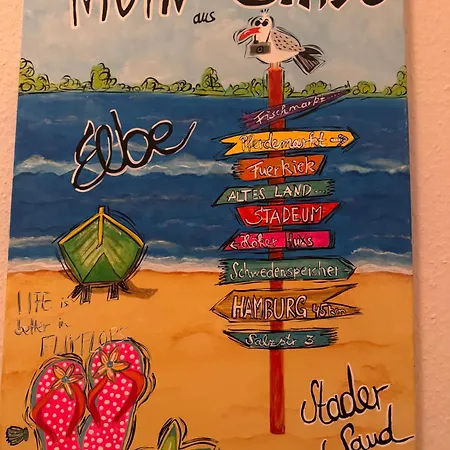 Moin aus
Elbe
Fischmarkt
Pferdemarkt
Fuerkiek
ALTES LAND...
STADEUM
Schwedenspeicher
HAMBURG 45km
Salzstr 3
LIFE is
better in
FLIPFLOPS
Stader
Sand